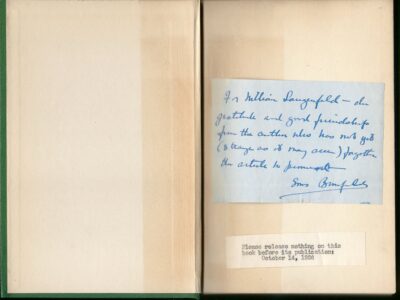 For William Langenfeld — in
gratitude and good friendship
from the author who has not yet
(strange as it may seem) forgotten
the article to
Please release nothing on this
book before its publication:
October 14, 1938